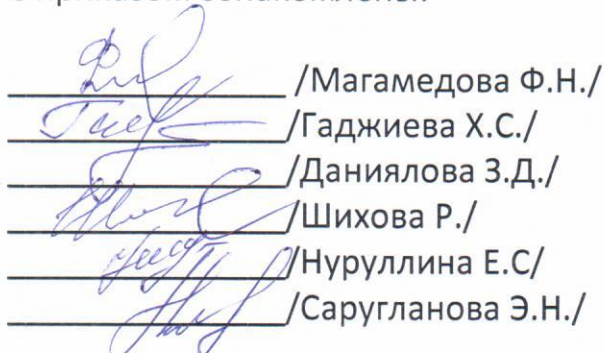 /Магамедова Ф.Н./
/Гаджиева Х.С./
/Даниялова З.Д./
/Шихова Р./
/Нуруллина Е.С/
/Саругланова Э.Н./